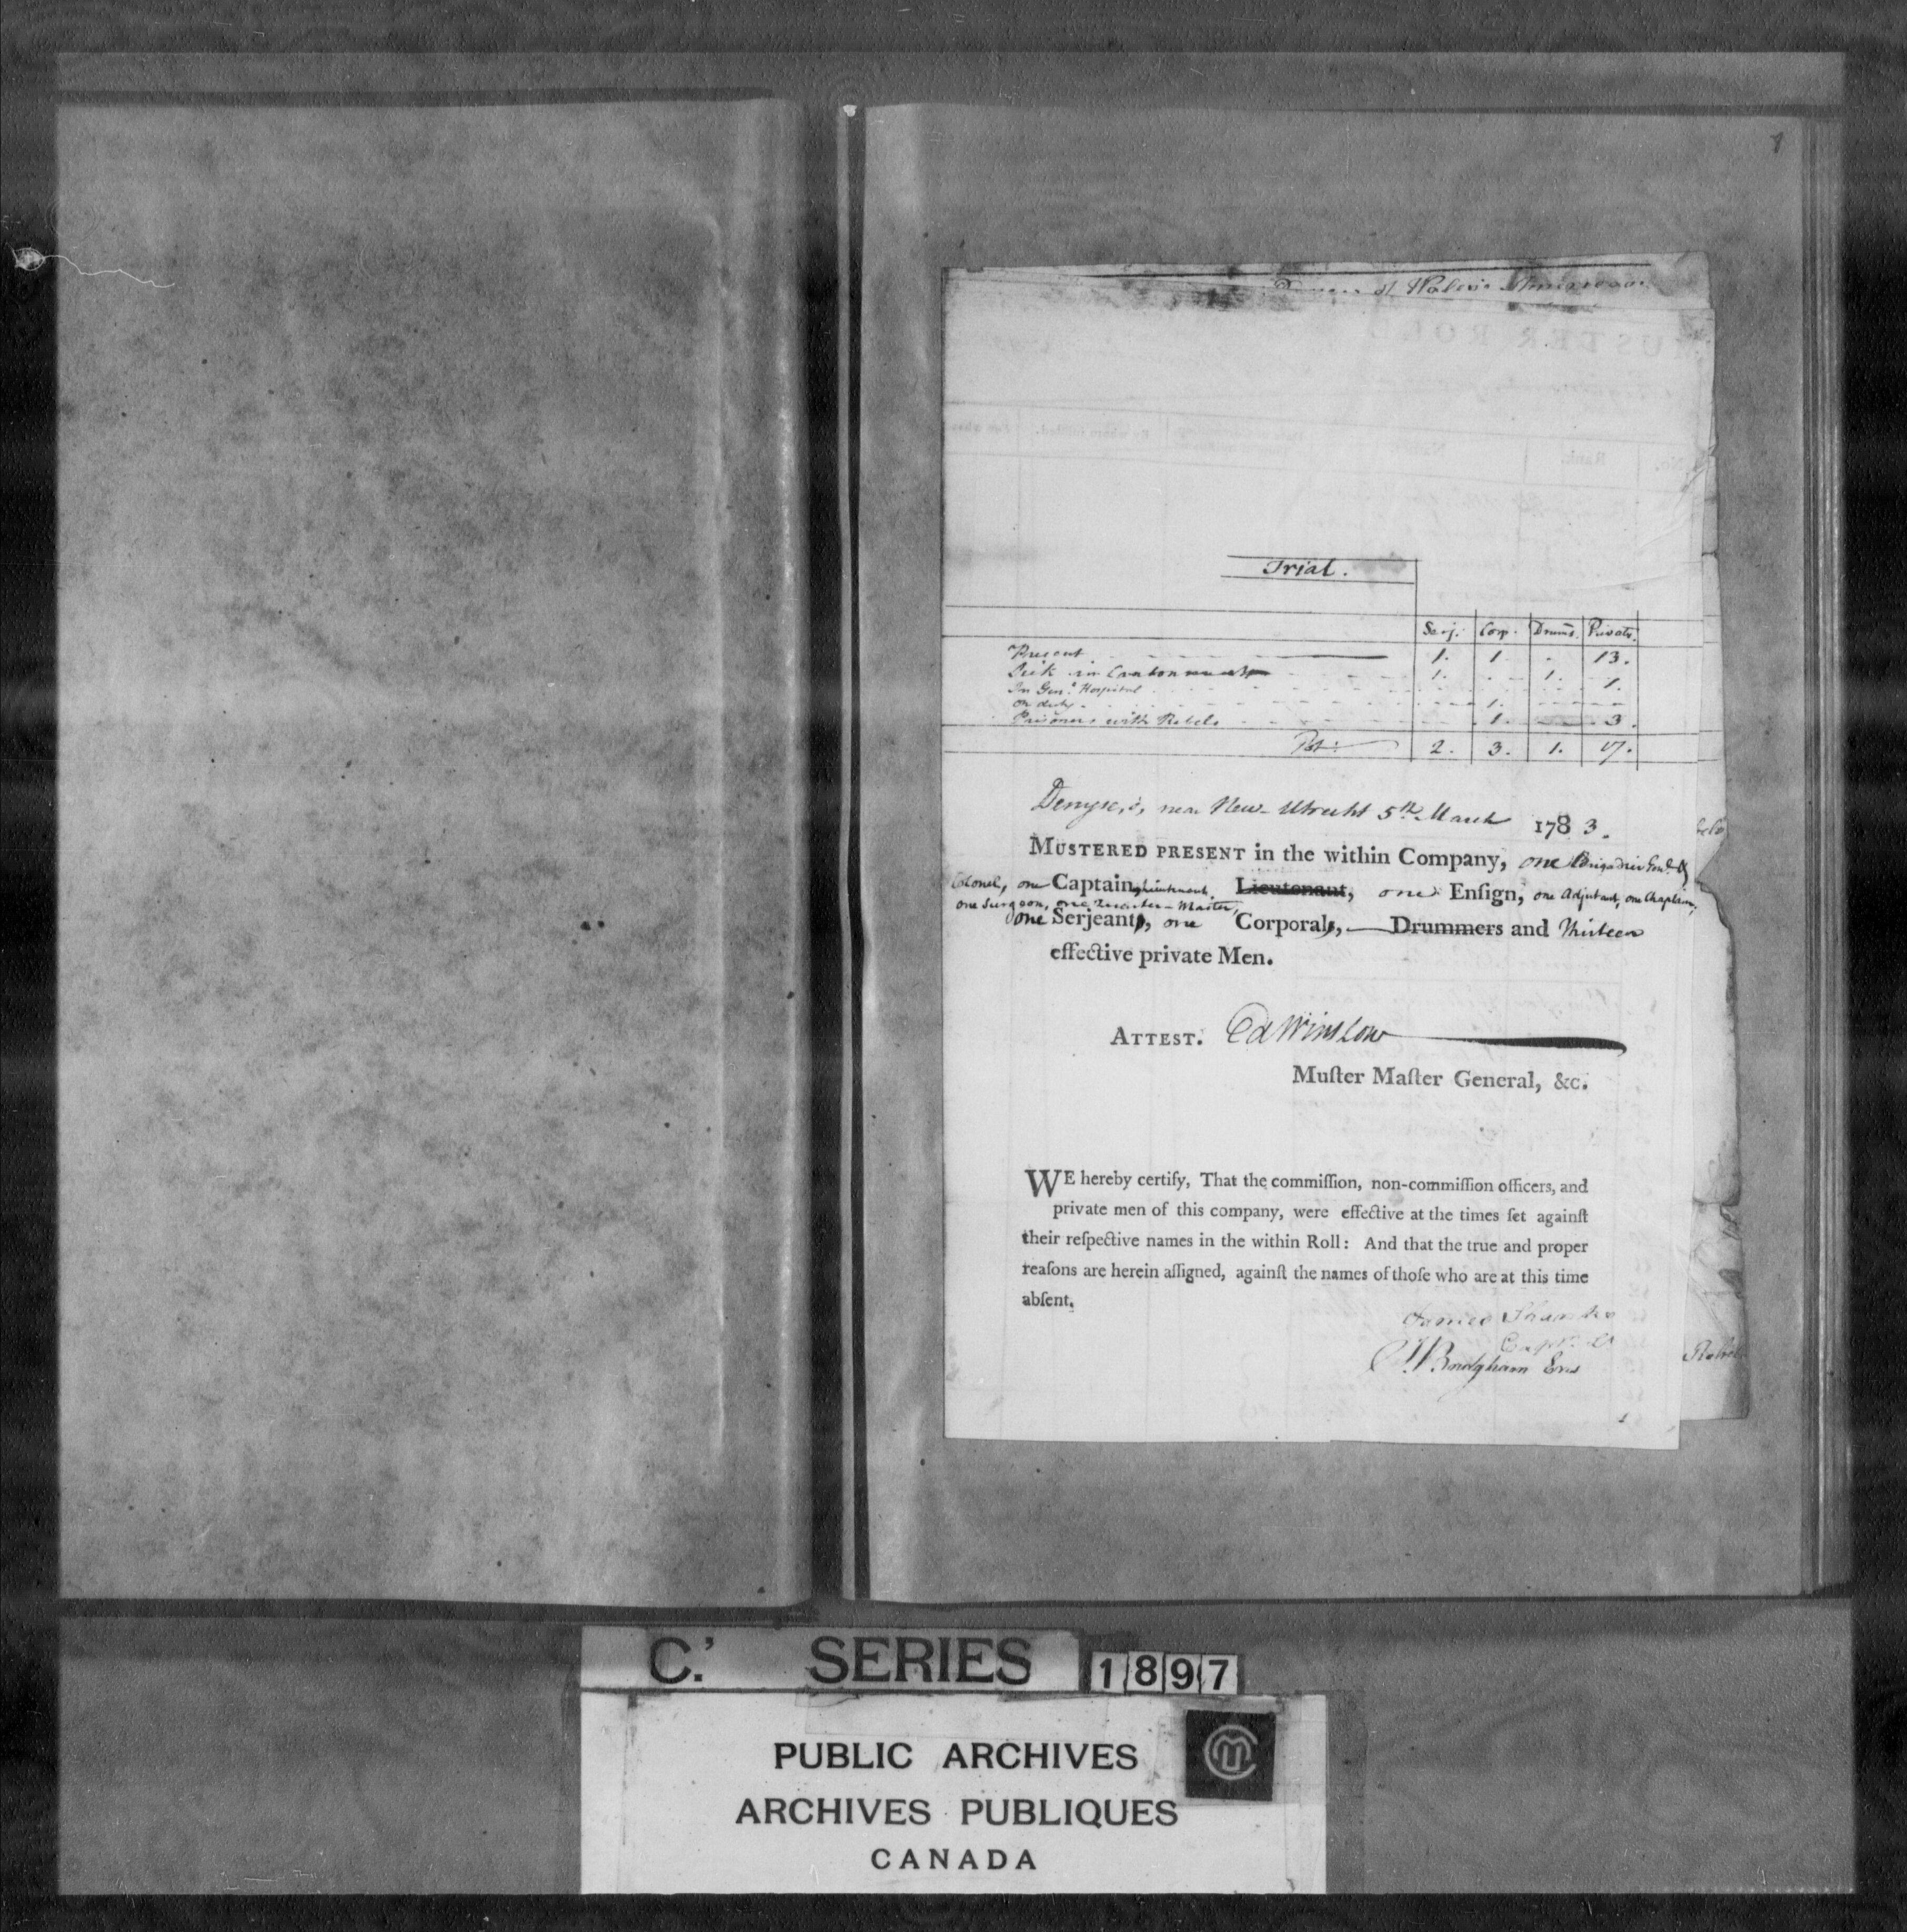 of Wales's American
MUSTER ROLL
No. Rank. Names.
Trial.
Serj. Corp. Drums. Privats.
Present 1. 1 . 13.
Sick in Cantonments 1. . 1. 1.
In Gen.l Hospital
On duty 1.
Prisoners with Rebels 1. 3.
Tot: 2. 3. 1. 17.
Denyse,s, near New-Utrecht 5th March 1783.
MUSTERED PRESENT in the within Company, one Brigadier Genl &
Colonel, one Captain Lieutenant, Lieutenant, one Ensign, one Adjutant, one Chaplain,
one Surgeon, one Quarter-Master,
one Serjeants, one Corporals, Drummers and Thirteen
effective private Men.
ATTEST. Ed Winslow
Muſter Maſter General, &c.
WE hereby certify, That the commiſſion, non-commiſſion officers, and
private men of this company, were effective at the times ſet againſt
their reſpective names in the within Roll: And that the true and proper
reaſons are herein aſſigned, againſt the names of thoſe who are at this time
abſent.
James Shanks
Capt. Lt
Bridgham Ens
Rebels
C.' SERIES 1897
PUBLIC ARCHIVES
ARCHIVES PUBLIQUES
CANADA